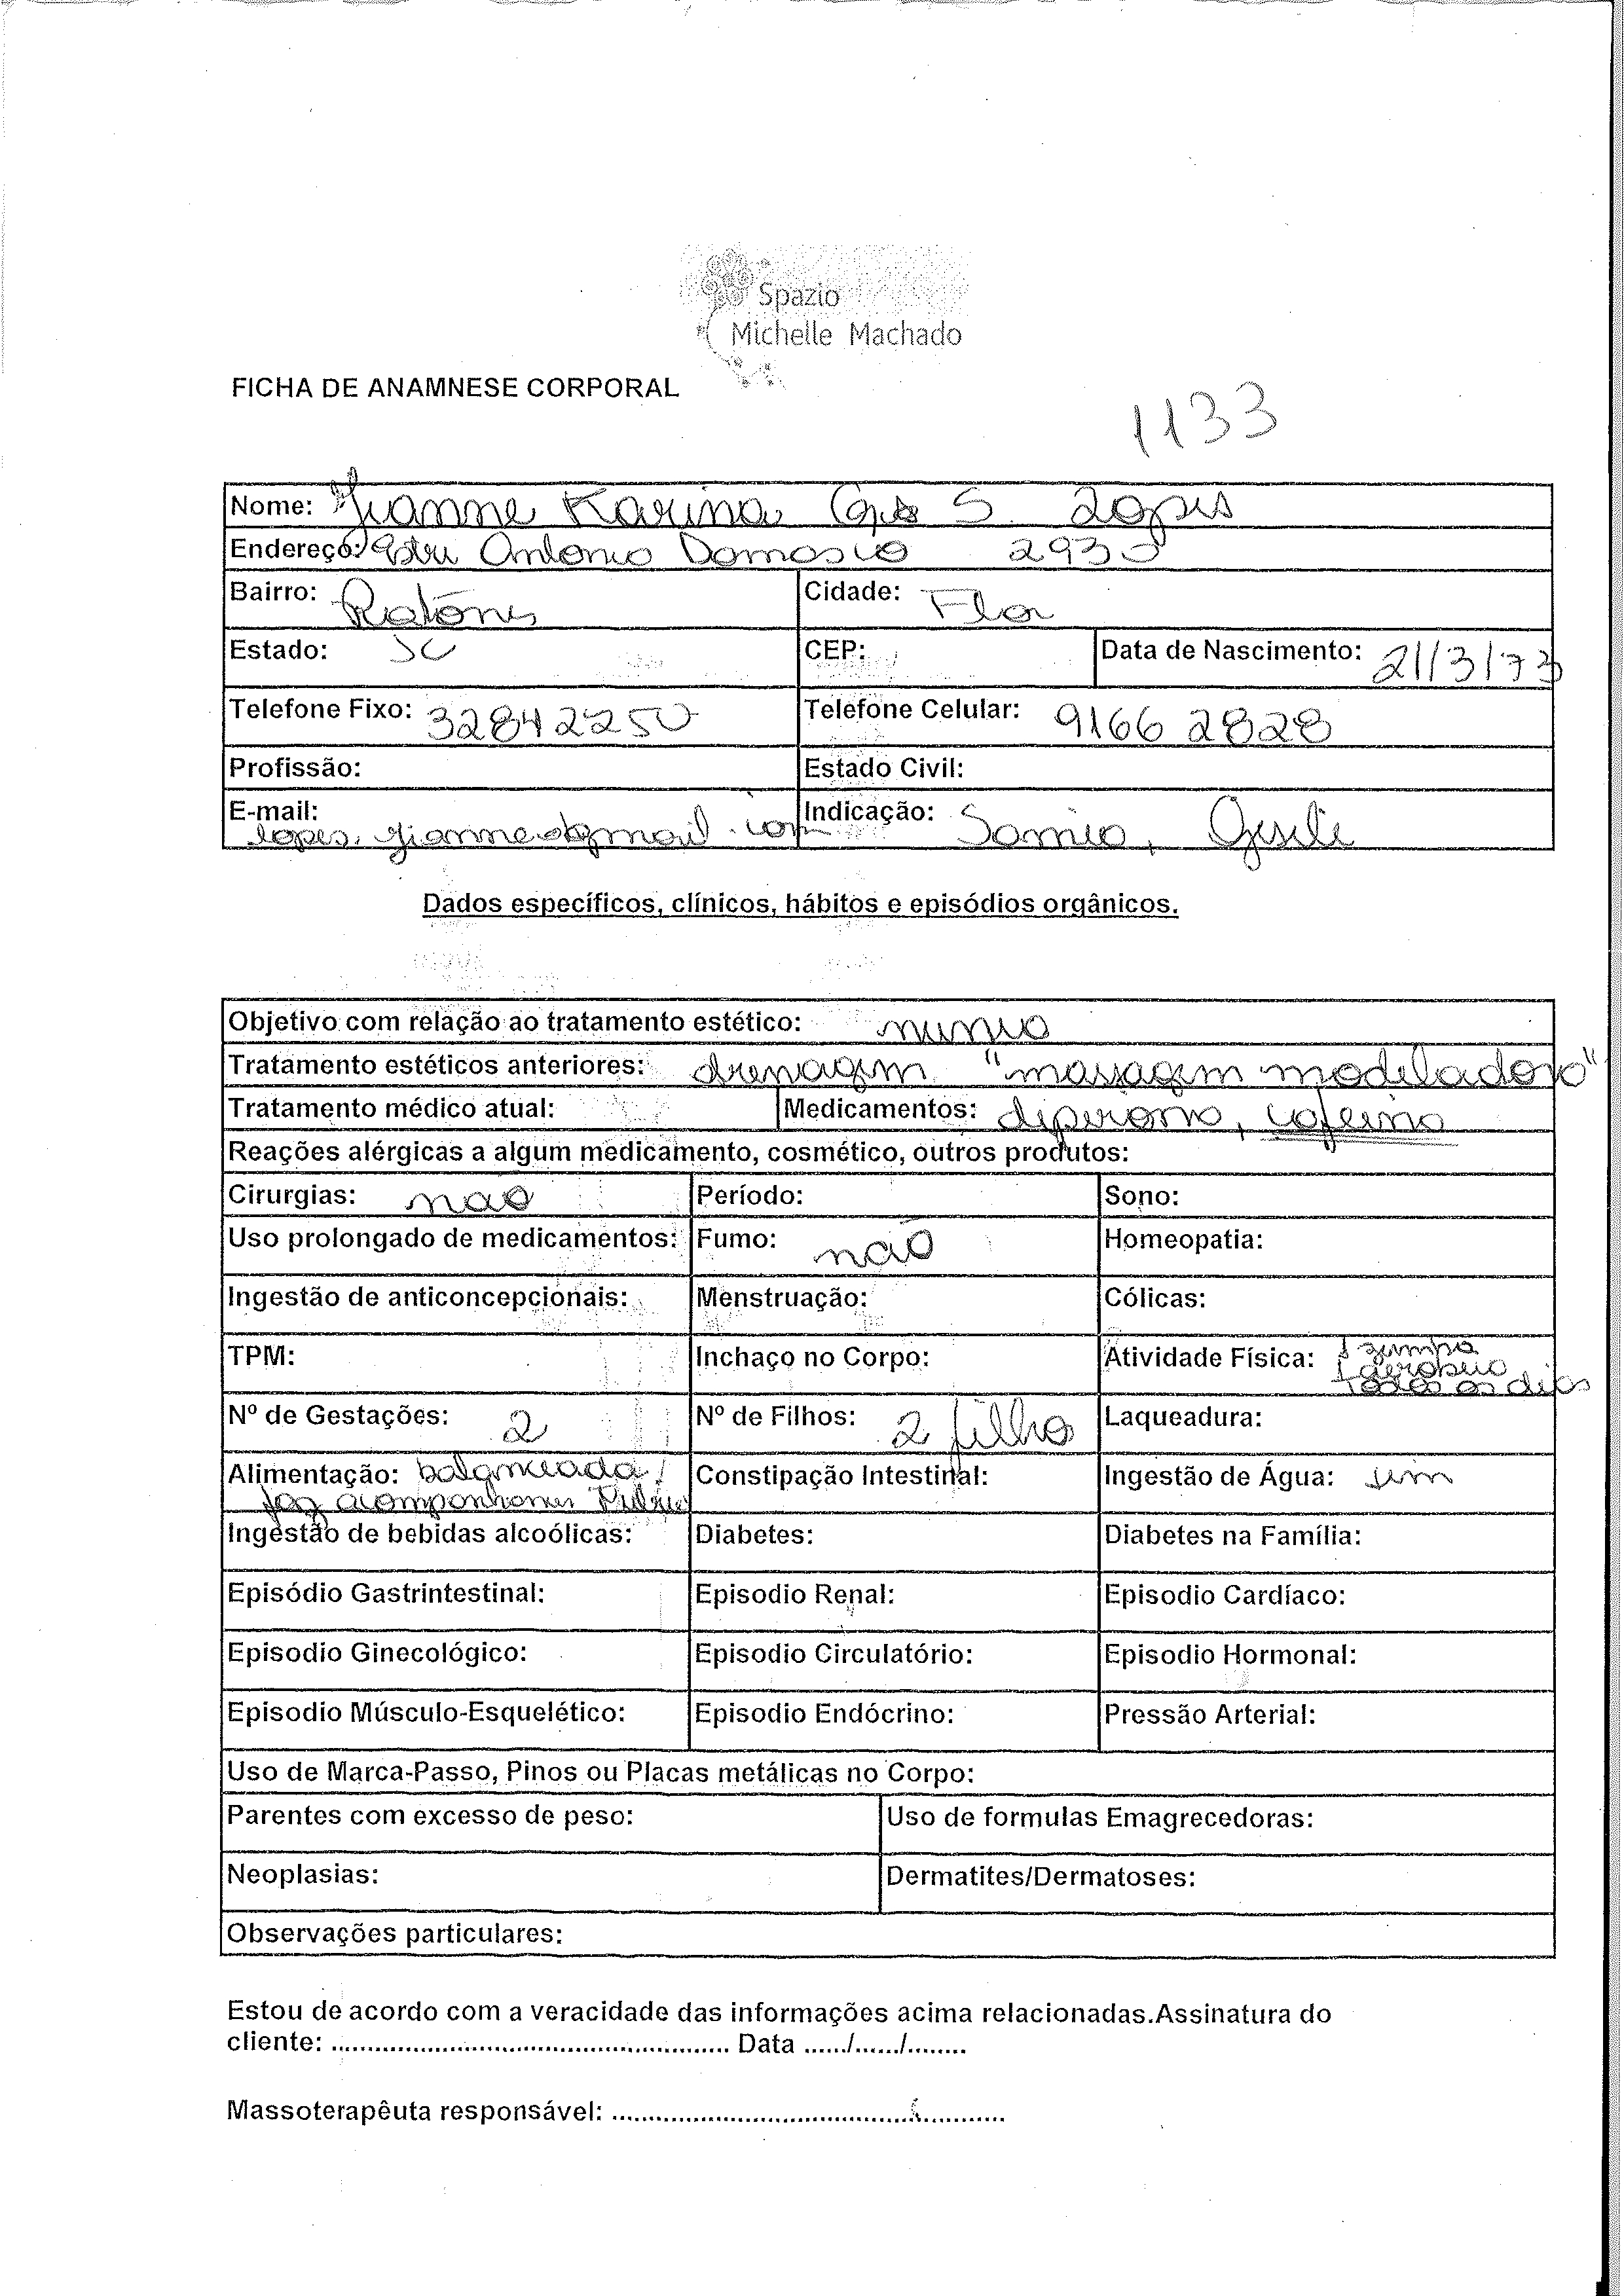 Spazio
Michelle Machado
FICHA DE ANAMNESE CORPORAL
1133
Nome: Gianne Karina S. Lopes
Endereço: Antonio Damasco 2930
Bairro: Ratones Cidade: Flor
Estado: SC CEP: Data de Nascimento: 21/3/73
Telefone Fixo: 32842250 Telefone Celular: 9166 2828
Profissão: Estado Civil:
E-mail: lopes.gianne@gmail.com Indicação: Samia, Gisele
Dados específicos, clínicos, hábitos e episódios orgânicos.
Objetivo com relação ao tratamento estético:
Tratamento estéticos anteriores: drenagem "massagem modeladora"
Tratamento médico atual: Medicamentos: dipirona, cafeina
Reações alérgicas a algum medicamento, cosmético, outros produtos:
Cirurgias: nao Período: Sono:
Uso prolongado de medicamentos: Fumo: não Homeopatia:
Ingestão de anticoncepcionais: Menstruação: Cólicas:
TPM: Inchaço no Corpo: Atividade Física: zumba
aerobico
todos os dias
Nº de Gestações: 2 Nº de Filhos: 2 filho Laqueadura:
Alimentação: balanceada / Constipação Intestinal: Ingestão de Água: sim
faz
Ingestão de bebidas alcoólicas: Diabetes: Diabetes na Família:
Episódio Gastrintestinal: Episodio Renal: Episodio Cardíaco:
Episodio Ginecológico: Episodio Circulatório: Episodio Hormonal:
Episodio Músculo-Esquelético: Episodio Endócrino: Pressão Arterial:
Uso de Marca-Passo, Pinos ou Placas metálicas no Corpo:
Parentes com excesso de peso: Uso de formulas Emagrecedoras:
Neoplasias: Dermatites/Dermatoses:
Observações particulares:
Estou de acordo com a veracidade das informações acima relacionadas.Assinatura do
cliente: ..................................................... Data ....../....../........
Massoterapêuta responsável: .....................................................